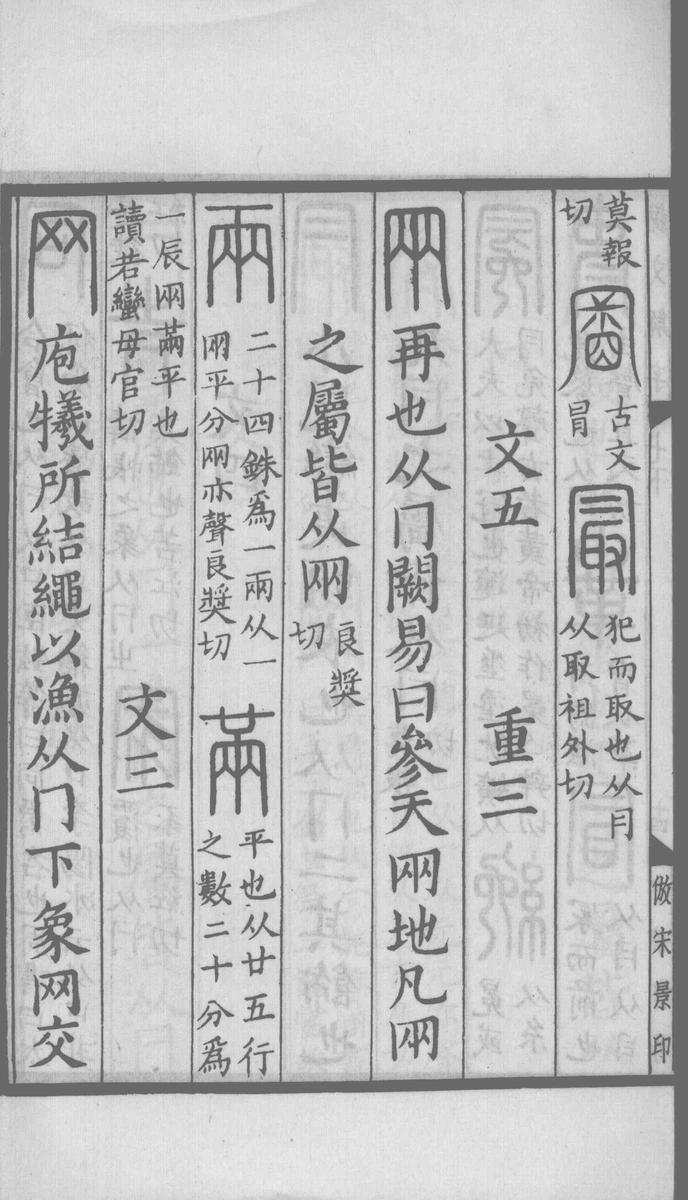 莫報切 𡇒 古文冒 冣 犯而取也从冃从取祖外切
文五 重三
㒳 再也从冂闕易曰參天㒳地凡㒳
之屬皆从㒳 良奬切
兩 二十四銖爲一兩从一㒳平分㒳亦聲良奬切 㒼 平也从廿五行之數二十分爲
一辰㒳㒼平也讀若蠻毋官切 文三
网 庖犧所結繩以漁从冂下象网交
倣宋景印